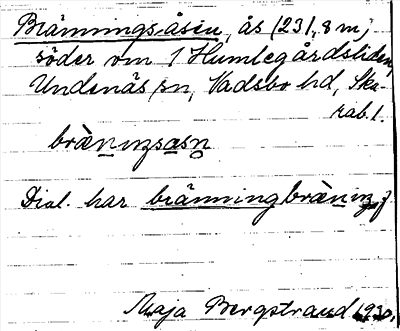 Bränningsåsen, ås (231,8 m)
söder om 1 Humlegårdsliden,
Undenäs sn, Vadsbo hd, Ska-
rab. l.
brɛ̀nıŋsåsn
Dial. har bränning brɛ̀nıŋ f
Maja Bergstrand 1930.